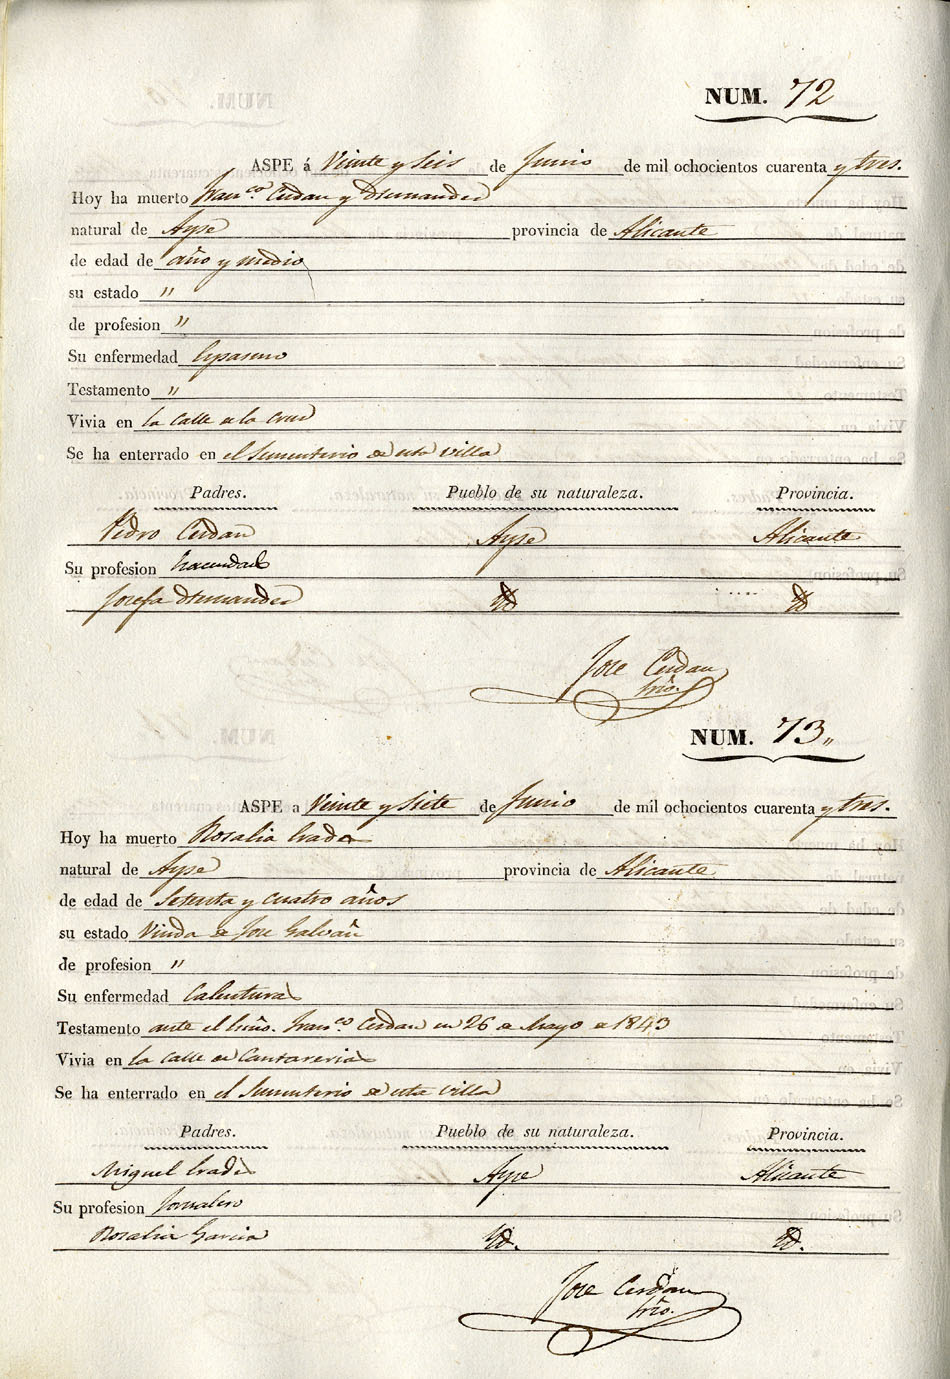 NUM. 72
ASPE á Veinte y seis de Junio de mil ochocientos cuarenta y tres.
Hoy ha muerto Franco. Cerdan y Hernandez
natural de Aspe provincia de Alicante
de edad de año y medio
su estado "
de profesion "
Su enfermedad Espasmo
Testamento "
Vivia en la calle de la Cruz
Se ha enterrado en el Sementerio de esta Villa
Padres. Pueblo de su naturaleza. Provincia.
Pedro Cerdan Aspe Alicante
Su profesion hacendado
Josefa Hernandez Yd Yd
Jose Cerdan
Srio.
NUM. 73"
ASPE a Veinte y Siete de Junio de mil ochocientos cuarenta y tres.
Hoy ha muerto Rosalia
natural de Aspe provincia de Alicante
de edad de Setenta y cuatro años
su estado Viuda de Jose Galvañ
de profesion "
Su enfermedad Calentura
Testamento ante el Franco. Cerdan en 26 de Mayo de 1843
Vivia en la calle de Cantareria
Se ha enterrado en el Sementerio de esta Villa
Padres. Pueblo de su naturaleza. Provincia.
Miguel Aspe Alicante
Su profesion Jornalero
Rosalia Garcia Yd. Yd.
Jose Cerdan
Srio.